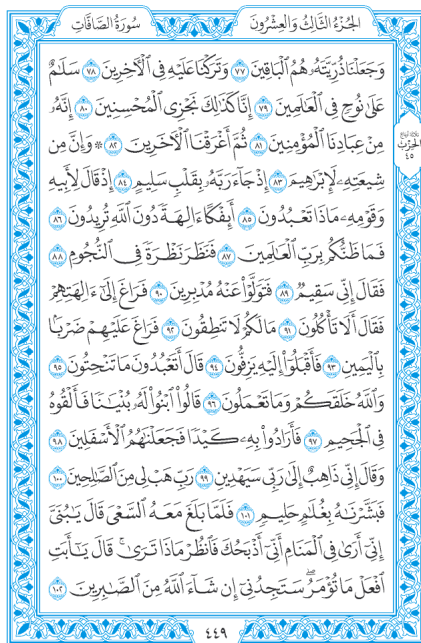 الجُزْءُ الثَّالِثُ وَالْعِشْرُونَ
سُورَةُ الصَّافَّاتِ
وَجَعَلْنَا ذُرِّيَّتَهُۥ هُمُ ٱلْبَاقِينَ ٧٧ وَتَرَكْنَا عَلَيْهِ فِي ٱلْأَخِرِينَ ٧٨ سَلَٰمٌ
عَلَىٰ نُوحٍ فِي ٱلْعَٰلَمِينَ ٧٩ إِنَّا كَذَٰلِكَ نَجْزِي ٱلْمُحْسِنِينَ ٨٠ إِنَّهُۥ
مِنْ عِبَادِنَا ٱلْمُؤْمِنِينَ ٨١ ثُمَّ أَغْرَقْنَا ٱلْأَخَرِينَ ٨٢ ۞ وَإِنَّ مِن
شِيعَتِهِۦ لَإِبْرَٰهِيمَ ٨٣ إِذْ جَآءَ رَبَّهُۥ بِقَلْبٍ سَلِيمٍ ٨٤ إِذْ قَالَ لِأَبِيهِ
وَقَوْمِهِۦ مَاذَا تَعْبُدُونَ ٨٥ أَئِفْكًا ءَالِهَةً دُونَ ٱللَّهِ تُرِيدُونَ ٨٦
فَمَا ظَنُّكُم بِرَبِّ ٱلْعَٰلَمِينَ ٨٧ فَنَظَرَ نَظْرَةً فِي ٱلنُّجُومِ ٨٨
فَقَالَ إِنِّي سَقِيمٌ ٨٩ فَتَوَلَّوْا۟ عَنْهُ مُدْبِرِينَ ٩٠ فَرَاغَ إِلَىٰٓ ءَالِهَتِهِمْ
فَقَالَ أَلَا تَأْكُلُونَ ٩١ مَا لَكُمْ لَا تَنطِقُونَ ٩٢ فَرَاغَ عَلَيْهِمْ ضَرْبًۢا
بِٱلْيَمِينِ ٩٣ فَأَقْبَلُوٓا۟ إِلَيْهِ يَزِفُّونَ ٩٤ قَالَ أَتَعْبُدُونَ مَا تَنْحِتُونَ ٩٥
وَٱللَّهُ خَلَقَكُمْ وَمَا تَعْمَلُونَ ٩٦ قَالُوا۟ ٱبْنُوا۟ لَهُۥ بُنْيَٰنًا فَأَلْقُوهُ
فِي ٱلْجَحِيمِ ٩٧ فَأَرَادُوا۟ بِهِۦ كَيْدًا فَجَعَلْنَٰهُمُ ٱلْأَسْفَلِينَ ٩٨
وَقَالَ إِنِّي ذَاهِبٌ إِلَىٰ رَبِّي سَيَهْدِينِ ٩٩ رَبِّ هَبْ لِي مِنَ ٱلصَّٰلِحِينَ ١٠٠
فَبَشَّرْنَٰهُ بِغُلَٰمٍ حَلِيمٍ ١٠١ فَلَمَّا بَلَغَ مَعَهُ ٱلسَّعْيَ قَالَ يَٰبُنَيَّ
إِنِّيٓ أَرَىٰ فِي ٱلْمَنَامِ أَنِّيٓ أَذْبَحُكَ فَٱنظُرْ مَاذَا تَرَىٰۚ قَالَ يَٰٓأَبَتِ
ٱفْعَلْ مَا تُؤْمَرُۖ سَتَجِدُنِيٓ إِن شَآءَ ٱللَّهُ مِنَ ٱلصَّٰبِرِينَ ١٠٢
الحِزْبُ
٤٥
٤٤٩